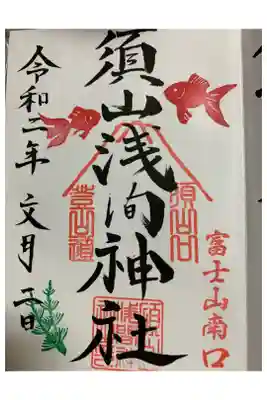 富士山南口
須山口
登山道
須山浅间神社
令和二年 文月 二日